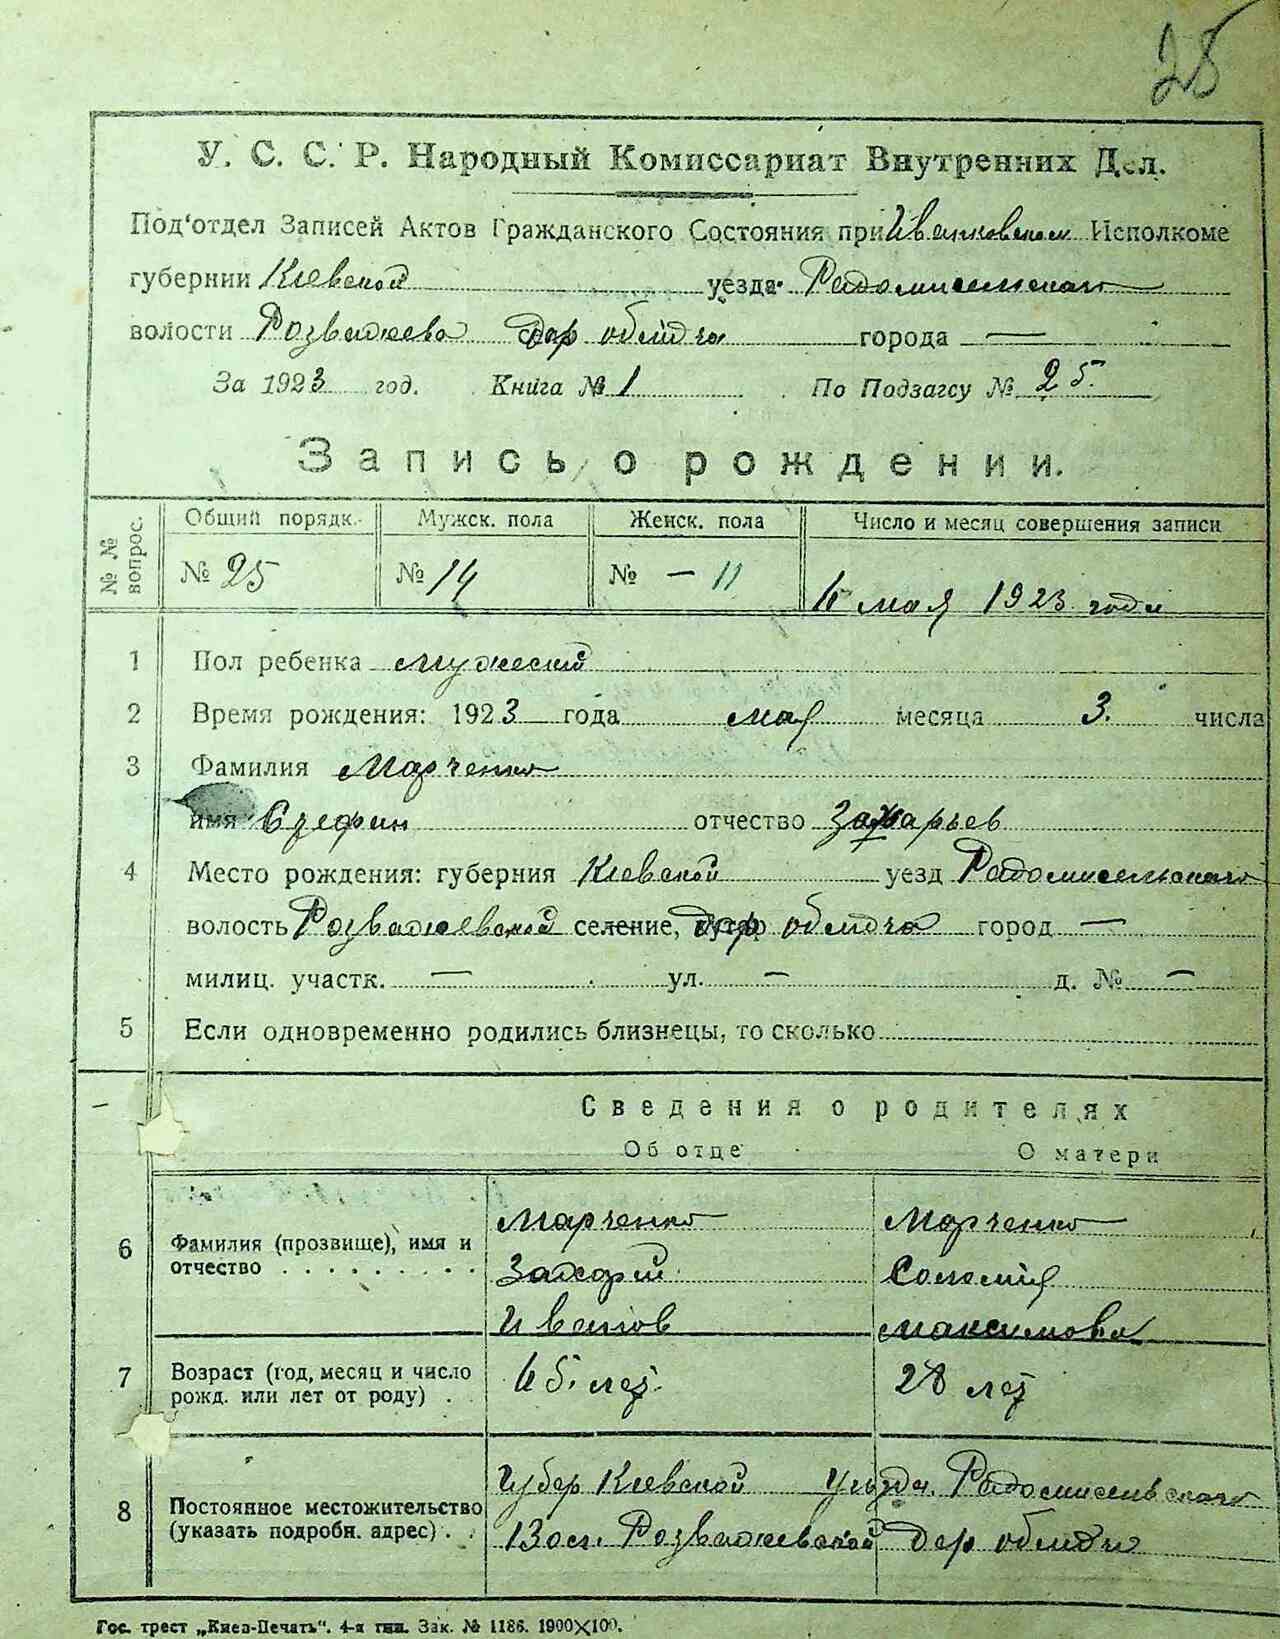 25
У. С. С. Р. Народный Комиссариат Внутренних Дел.
Под'отдел Записей Актов Гражданского Состояния при Иванковском Исполкоме
губернии Киевской уезда Радомисельскаго
волости Розважево дер обидча города —
За 1923 год. Книга № 1 По Подзагсу № 25.
Запись о рождении.
№ № вопрос. Общий порядк. Мужск. пола Женск. пола Число и месяц совершения записи
№ 25 № 14 № — 11 мая 1923 года
1 Пол ребенка мужеский
2 Время рождения: 1923 года мая месяца 3. числа
3 Фамилия Марченко
имя отчество Захарьев
4 Место рождения: губерния Киевской уезд Радомисельскаго
волость Розважевской селение, хутор обидча город —
милиц. участк. — ул. — д. № —
5 Если одновременно родились близнецы, то сколько
Сведения о родителях
Об отце О матери
6 Фамилия (прозвище), имя и отчество Марченко Марченко
Захорий Соломия
Иванов Максимова
7 Возраст (год, месяц и число рожд. или лет от роду) лет. 28 лет
8 Постоянное местожительство (указать подробн. адрес) Губер Киевской Уезда. Радомисельскаго
Вол. Розважевской дер обидча
Гос. трест „Киев-Печать". 4-я тип. Зак. № 1186. 1900×100.